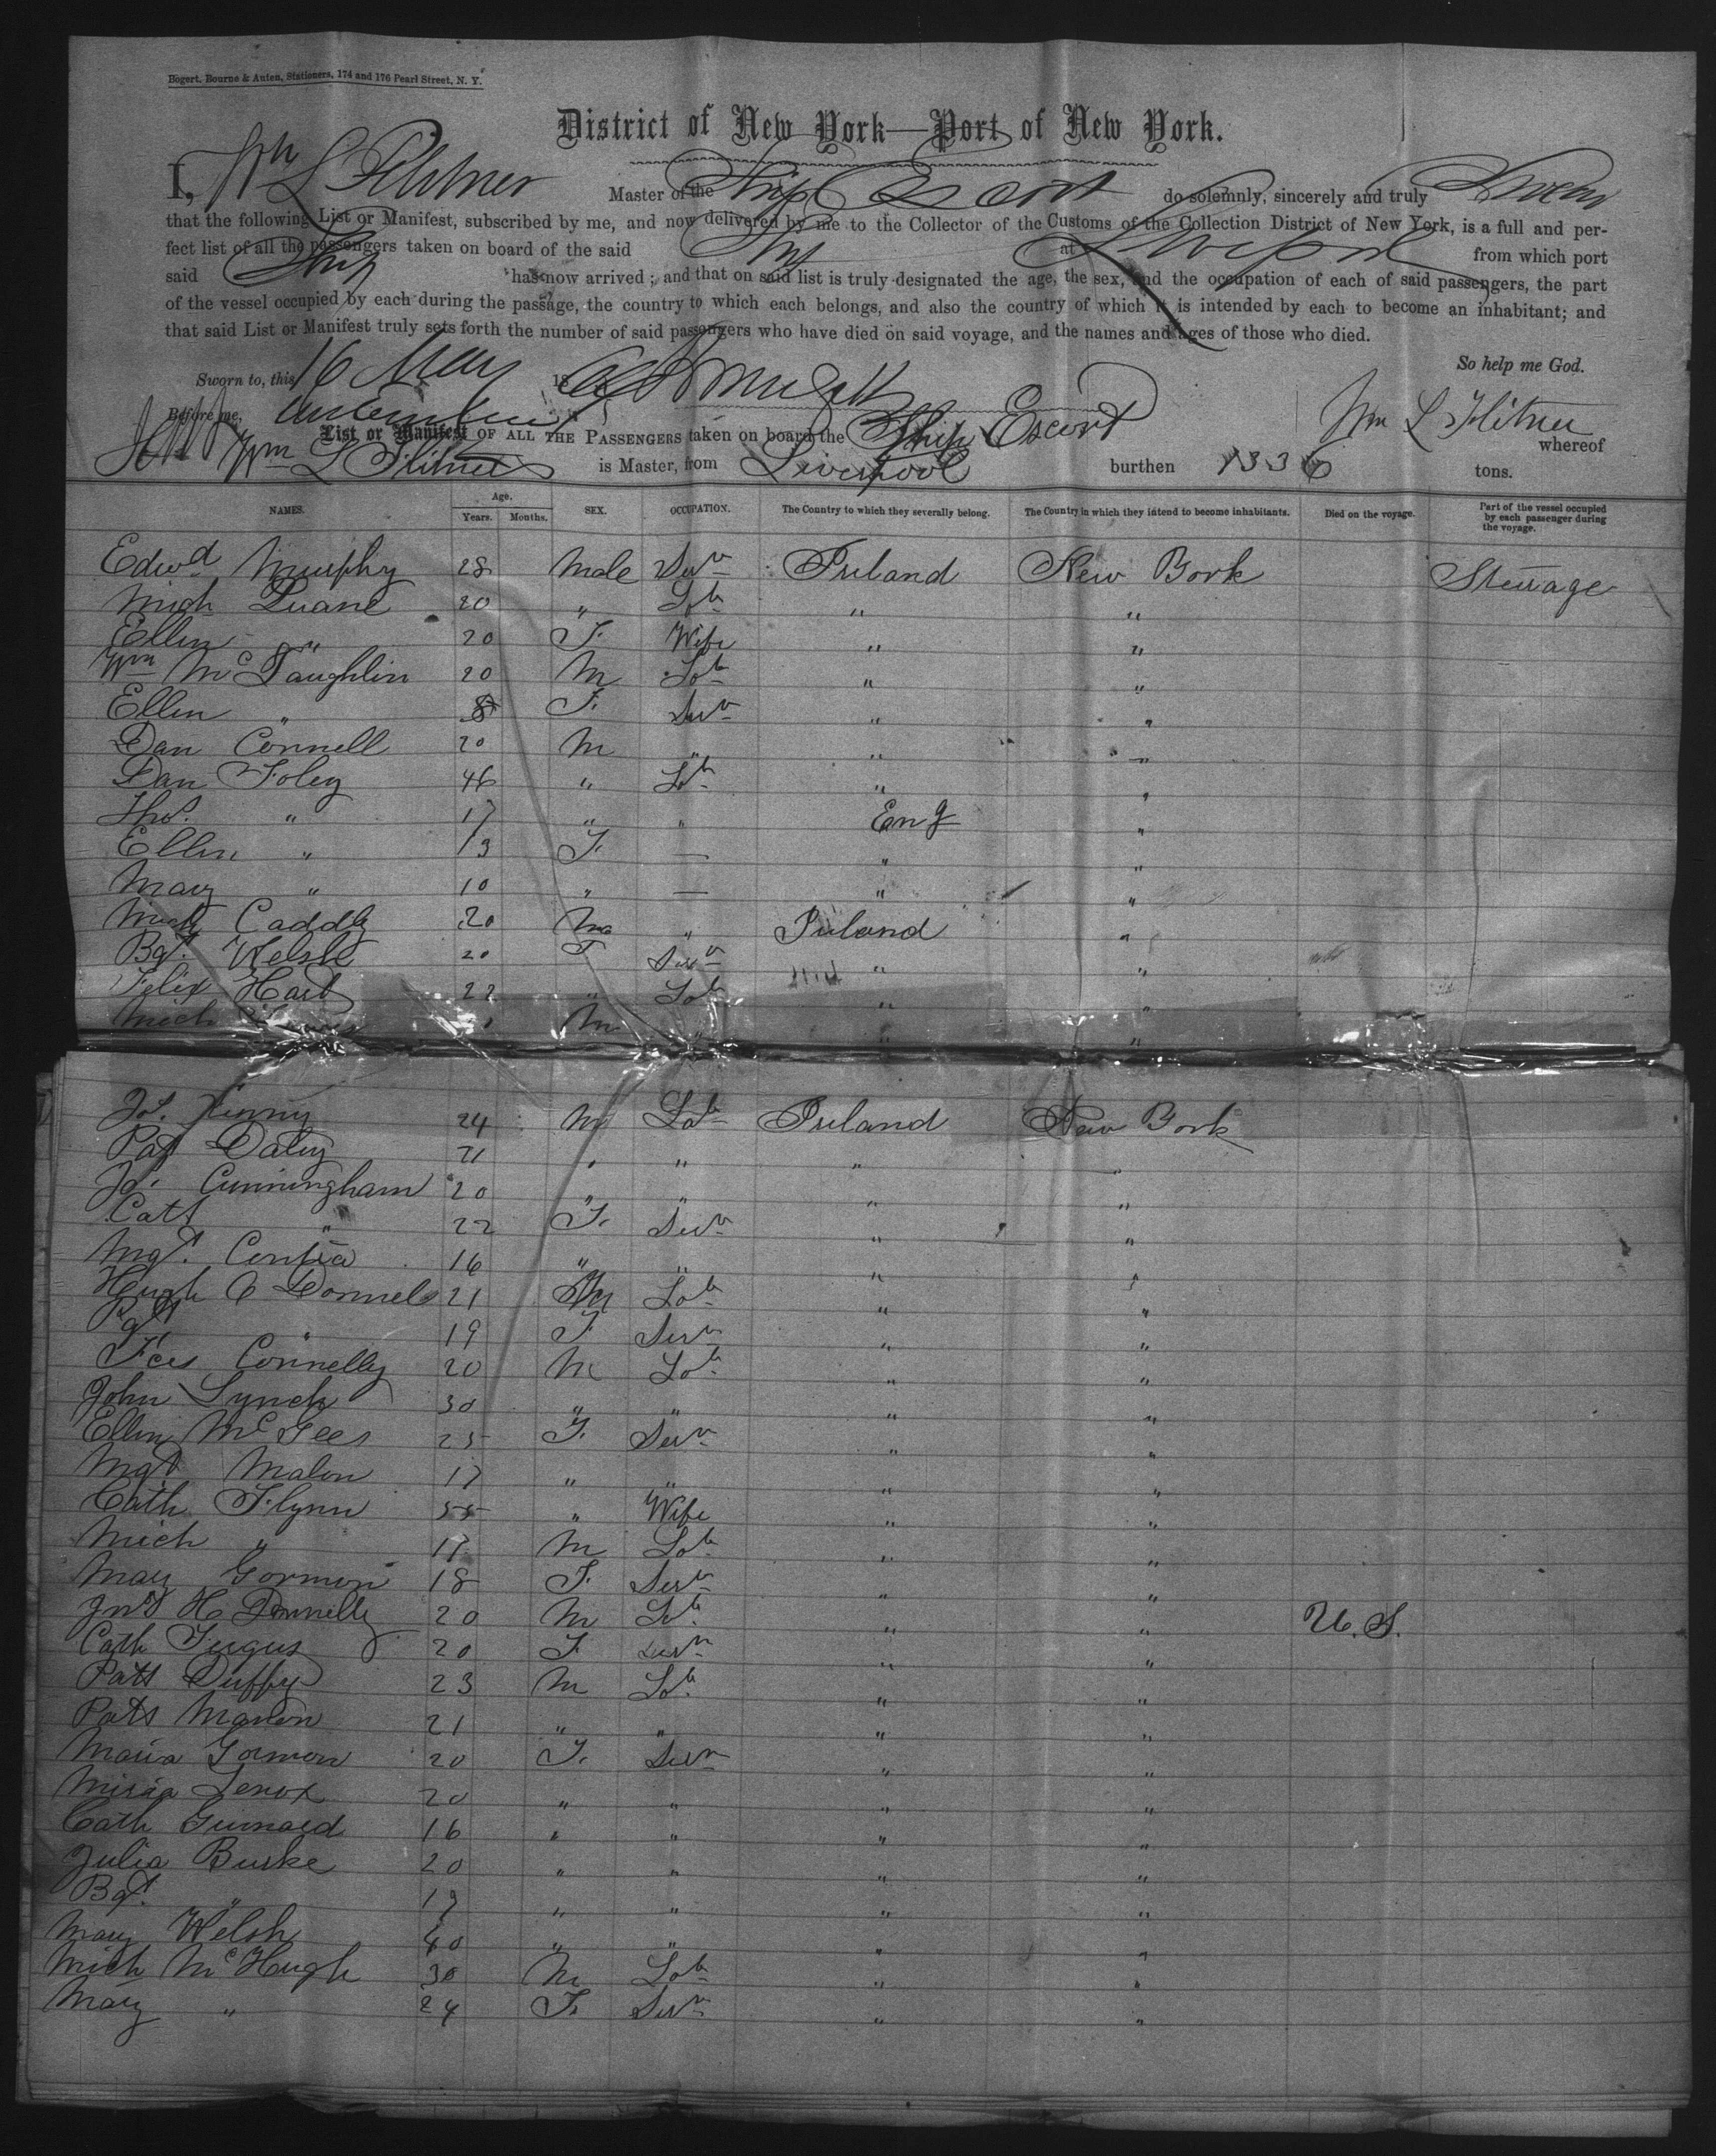 Bogert, Bourne & Auten, Stationers, 174 and 176 Pearl Street, N. Y.
District of New York—Port of New York.
I, Wm L Flitner Master of the Ship Escort do solemnly, sincerely and truly Swear
that the following List or Manifest, subscribed by me, and now delivered by me to the Collector of the Customs of the Collection District of New York, is a full and per-
fect list of all the passengers taken on board of the said Ship at Liverpool from which port
said Ship has now arrived; and that on said list is truly designated the age, the sex, and the occupation of each of said passengers, the part
of the vessel occupied by each during the passage, the country to which each belongs, and also the country of which it is intended by each to become an inhabitant; and
that said List or Manifest truly sets forth the number of said passengers who have died on said voyage, and the names and ages of those who died.
So help me God.
Sworn to, this 16 May 18
Before me, Wm L Flitner
List or Manifest OF ALL THE PASSENGERS taken on board the Ship Escort whereof
Wm L Flitner is Master, from Liverpool burthen 1336 tons.
NAMES. Age. Years. Months. SEX. OCCUPATION. The Country to which they severally belong. The Country in which they intend to become inhabitants. Died on the voyage. Part of the vessel occupied by each passenger during the voyage.
Edwd Murphy 28 Male Serv Ireland New York Steerage
Mich Duane 20 " Lab " "
Ellen " 20 F. Wife " "
Wm McLaughlin 20 M Lab " "
Ellen " 8 F. Serv " "
Dan Connell 20 M " " "
Dan Foley 46 " Lab " "
Thos. " 17 " " Eng "
Ellen " 13 F. — " "
Mary " 10 " — " "
Mich Caddly 20 M " Ireland "
Bgt. Welsh 20 F Serv " "
Felix Hart 22 " Lab " "
Mich M " "
Js. 24 M Lab Ireland New York
Pat Daley 21 " " " "
Js. Cunningham 20 " " " "
Cath " 22 F. Serv " "
Mgt. 16 " " " "
Hugh O Donnel 21 M Lab " "
Bgt " 19 F Serv " "
Fcs Connelly 20 M Lab " "
John Lynch 30 " " " "
Ellen McGees 25 F. Serv " "
Mgt Malon 17 " " " "
Cath Flynn 55 " Wife " "
Mich " 17 M Lab " "
Mary Gormon 18 F. Serv " "
Jno H Donnelly 20 M Lab " " U.S.
Cath Fergus 20 F. Serv " "
Patt Duffy 23 M Lab " "
Patt Manion 21 " " " "
Maria Gormon 20 F. Serv " "
Lenox 20 " " " "
Cath 16 " " " "
Julia Burke 20 " " " "
Bgt. " 19 " " " "
Mary Welsh 40 " " " "
Mich McHugh 30 M Lab " "
Mary " 24 F. Serv " "